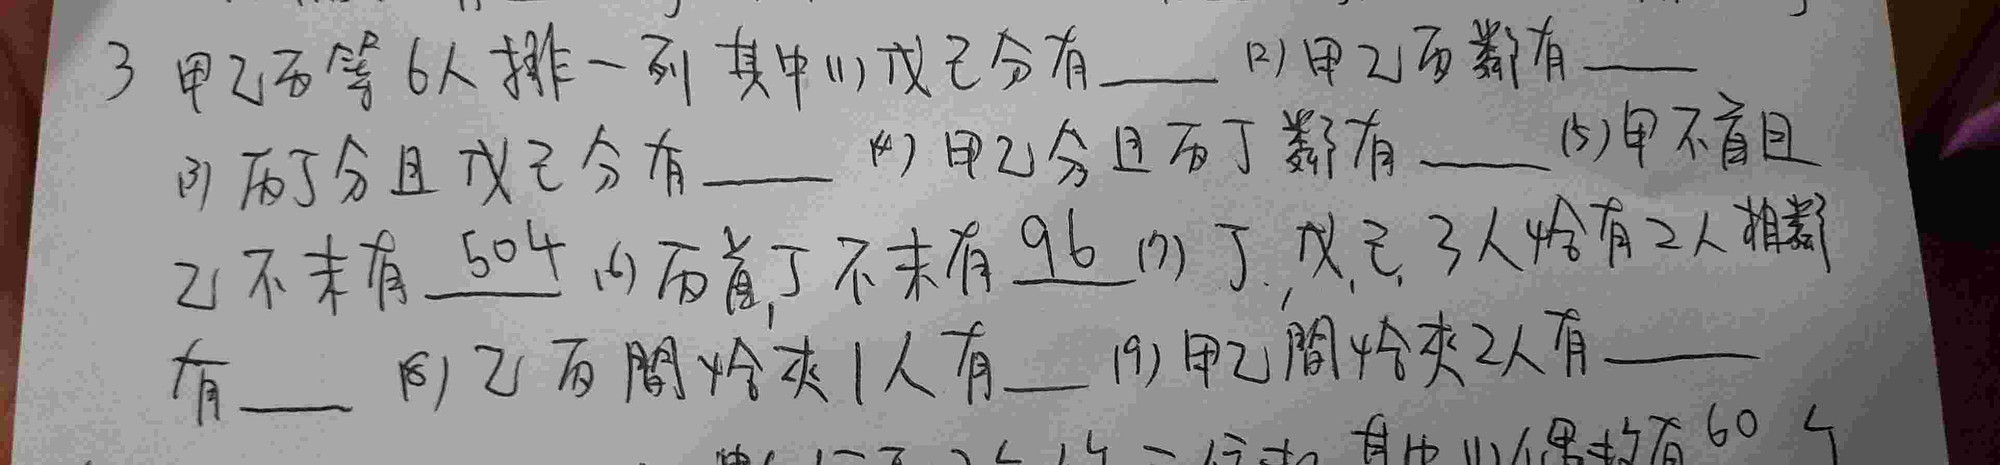 3 甲乙丙等6人排一列 其中(1)戊己分有____ (2)甲乙丙鄰有____
(3)丙丁分且戊己分有____ (4)甲乙分且丙丁鄰有____ (5)甲不首且
乙不末有 504 (6)丙首,丁不末有 96 (7)丁,戊,己,3人恰有2人相鄰
有____ (8)乙丙間恰夾1人有____ (9)甲乙間恰夾2人有____
其中(1)偶數有60个